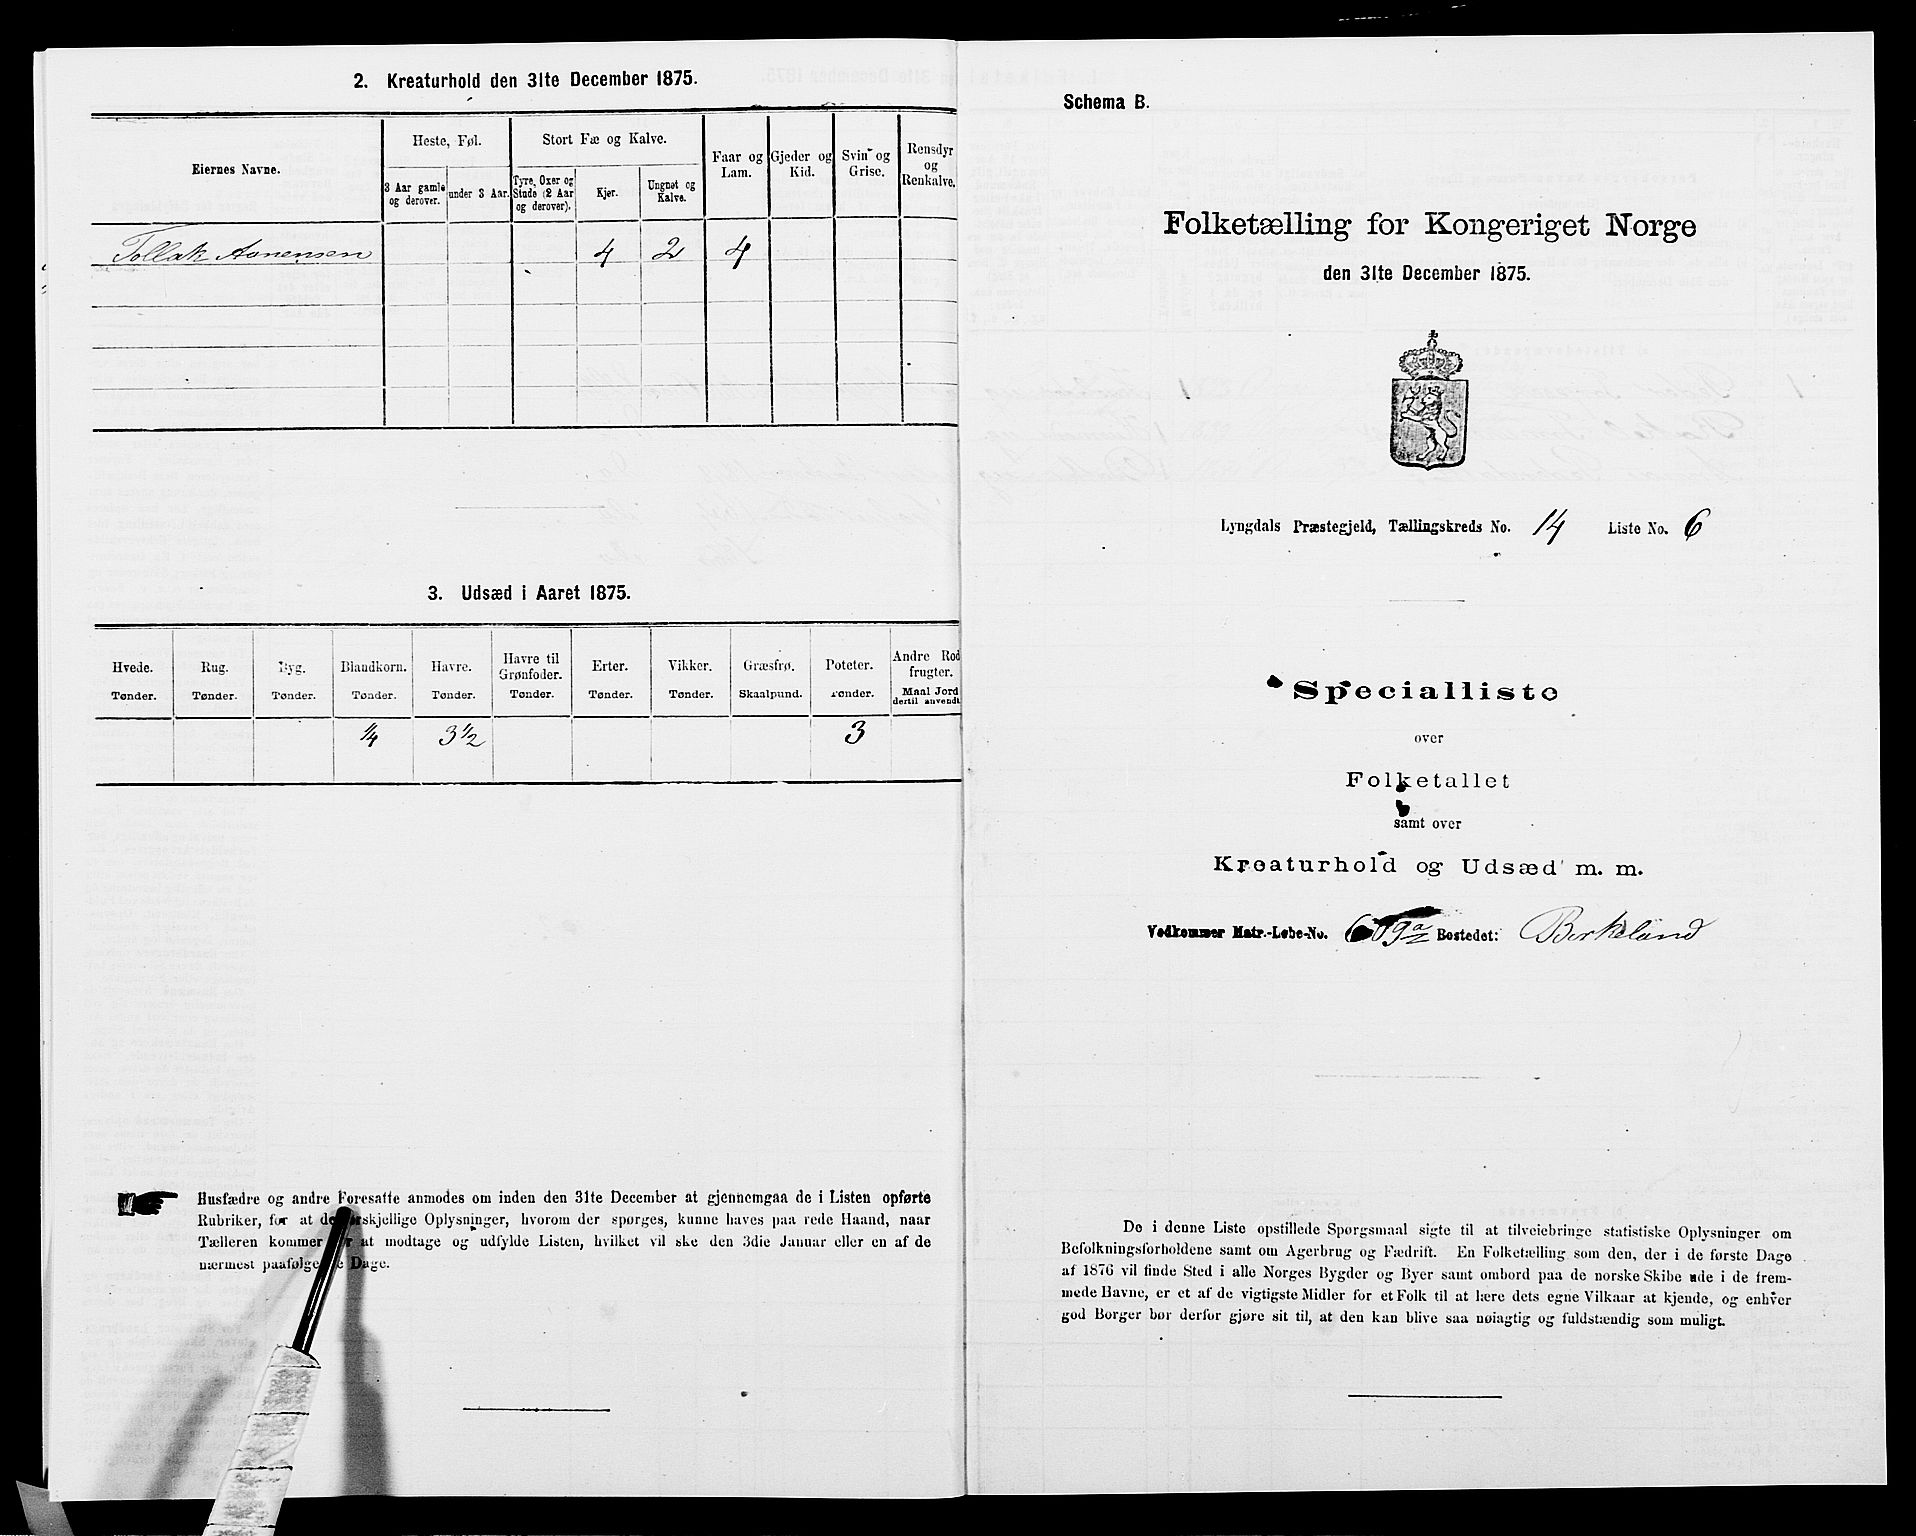 2. Kreaturhold den 31te December 1875.
Eiernes Navne.
Heste, Føl.
3 Aar gamle og derover.
under 3 Aar.
Stort Fæ og Kalve.
Tyre, Oxer og Stude (2 Aar og derover).
Kjør.
Ungnøt og Kalve.
Faar og Lam.
Gjeder og Kid.
Svin og Grise.
Rensdyr og Renkalve.
Tollak Aanensen 4 2 4
3. Udsæd i Aaret 1875.
Hvede. Tønder.
Rug. Tønder.
Byg. Tønder.
Blandkorn. Tønder.
Havre. Tønder.
Havre til Grønfoder. Tønder.
Erter. Tønder.
Vikker. Tønder.
Græsfrø. Skaalpund.
Poteter. Tønder.
Andre Rodfrugter. Maal Jord dertil anvendt.
1/4 3 1/2 3
Husfædre og andre Foresatte anmodes om inden den 31te December at gjennemgaa de i Listen opførte
Rubriker, for at de forskjellige Oplysninger, hvorom der spørges, kunne haves paa rede Haand, naar
Tælleren kommer for at modtage og udfylde Listen, hvilket vil ske den 3die Januar eller en af de
nærmest paafølgende Dage.
Schema B.
Folketælling for Kongeriget Norge
den 31te December 1875.
Lyngdals Præstegjeld, Tællingskreds No. 14 Liste No. 6
Specialliste
over
Folketallet
samt over
Kreaturhold og Udsæd m. m.
Vedkommer Matr.-Løbe-No. 609 a/2 Bostedet: Birkeland
De i denne Liste opstillede Spørgsmaal sigte til at tilveiebringe statistiske Oplysninger om
Befolkningsforholdene samt om Agerbrug og Fædrift. En Folketælling som den, der i de første Dage
af 1876 vil finde Sted i alle Norges Bygder og Byer samt ombord paa de norske Skibe ude i de frem-
mede Havne, er et af de vigtigste Midler for et Folk til at lære dets egne Vilkaar at kjende, og enhver
god Borger bør derfor gjøre sit til, at den kan blive saa nøiagtig og fuldstændig som muligt.